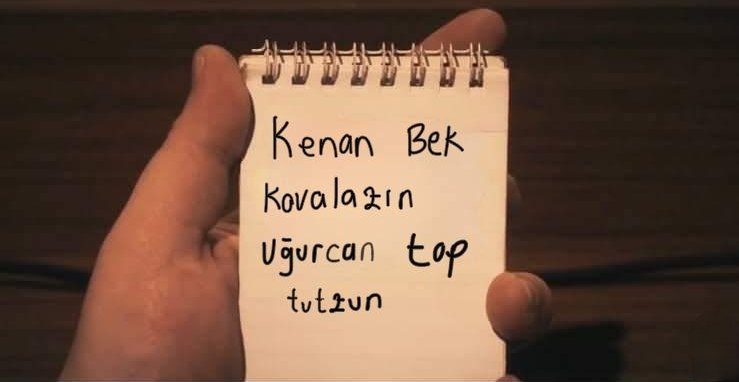 Kenan Bek
Kovalazın
Uğurcan top
tutzun